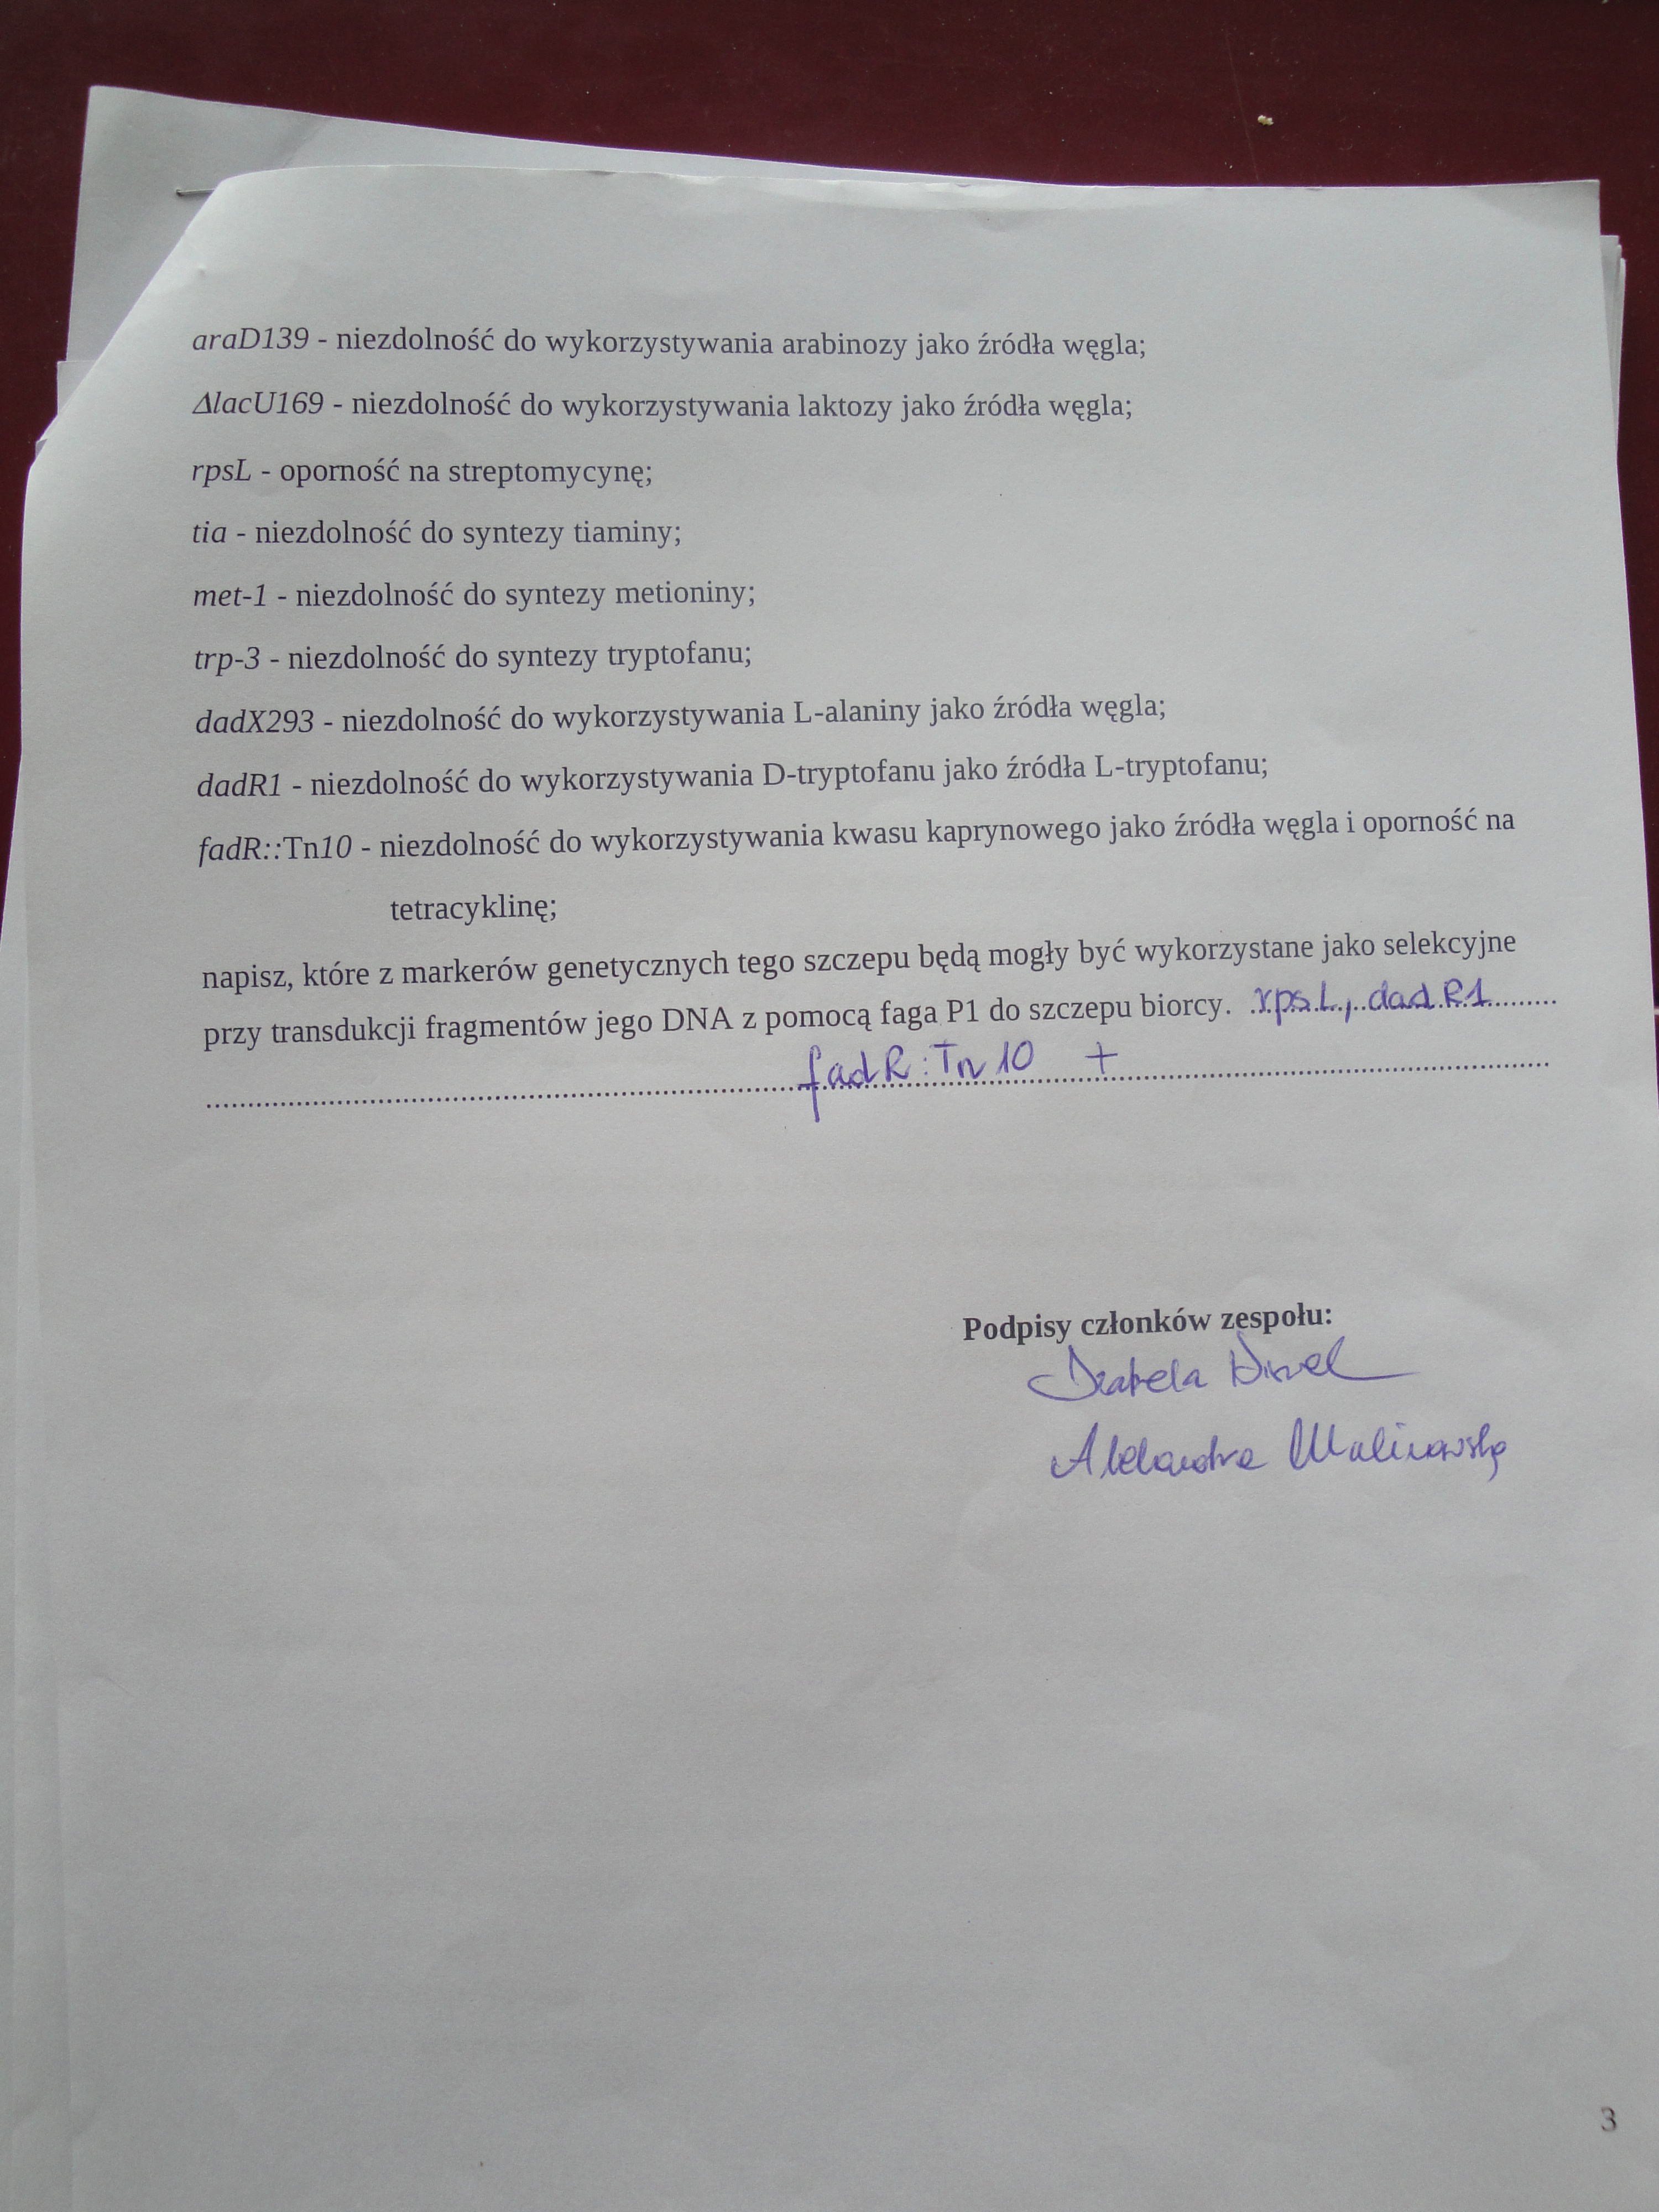 araD139 - niezdolność do wykorzystywania arabinozy jako źródła węgla;
ΔlacU169 - niezdolność do wykorzystywania laktozy jako źródła węgla;
rpsL - oporność na streptomycynę;
tia - niezdolność do syntezy tiaminy;
met-1 - niezdolność do syntezy metioniny;
trp-3 - niezdolność do syntezy tryptofanu;
dadX293 - niezdolność do wykorzystywania L-alaniny jako źródła węgla;
dadR1 - niezdolność do wykorzystywania D-tryptofanu jako źródła L-tryptofanu;
fadR::Tn10 - niezdolność do wykorzystywania kwasu kaprynowego jako źródła węgla i oporność na
tetracyklinę;
napisz, które z markerów genetycznych tego szczepu będą mogły być wykorzystane jako selekcyjne
przy transdukcji fragmentów jego DNA z pomocą faga P1 do szczepu biorcy. rpsL, dadR1
fadR:Tn10 +
Podpisy członków zespołu:
Izabela
Aleksandra Malinowska
3